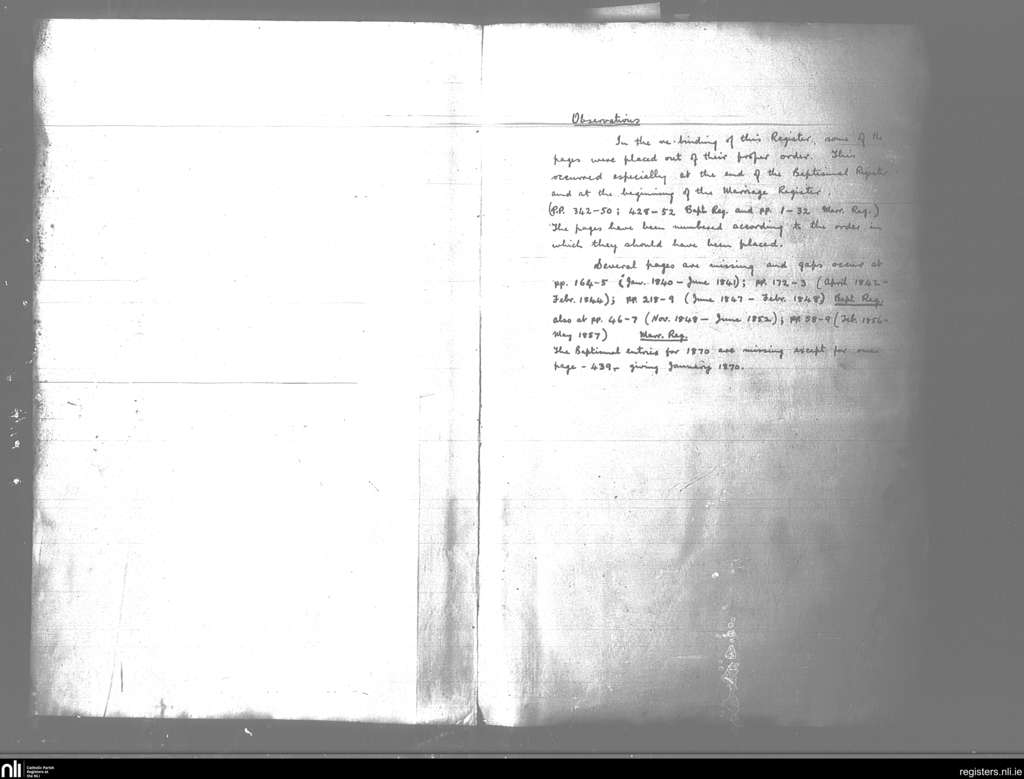 Observations
In the re-binding of this Register, some of the
pages were placed out of their proper order. This
occurred especially at the end of the Baptismal Register
and at the beginning of the Marriage Register.
(P.P. 342-50; 428-52 Bapt. Reg. and pp. 1-32 Marr. Reg.)
The pages have been numbered according to the order in
which they should have been placed.
Several pages are missing and gaps occur at
pp. 164-5 (Jan. 1840 - June 1841); pp. 172-3 (April 1842-
Febr. 1844); pp 218-9 (June 1847 - Febr. 1848) Bapt. Reg.
also at pp. 46-7 (Nov. 1848 - June 1852); pp 58-9 (Feb. 1856-
May 1857) Marr. Reg.
The Baptismal entries for 1870 are missing except for one
page - 439, - giving January 1870.
nli
Catholic Parish
Registers at
the NLI
registers.nli.ie